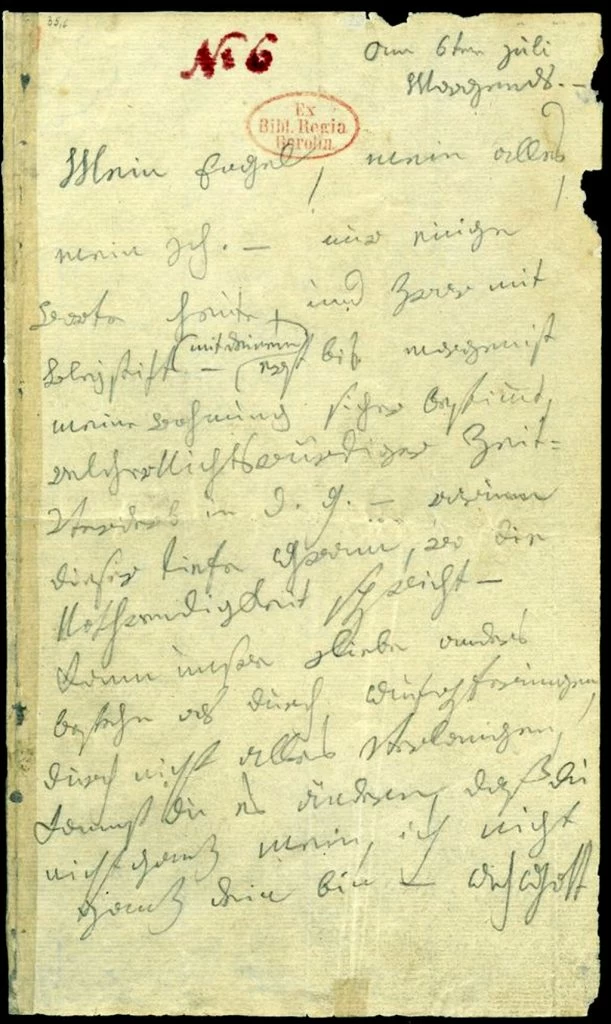 № 6
am 6ten Juli
Morgends. –
Ex
Bibl. Regia
Berolin.
Mein Engel, mein alles,
mein Ich. – nur einige
Worte heute, und zwar mit
Bleystift – (mit deinem)
erst bis morgen ist
meine Wohnung sicher bestimmt,
welcher Nichtswürdiger Zeit=
verderb in d. g. – warum
dieser tiefe Gram, wo die
Nothwendigkeit spricht –
Kann unsre Liebe anders
bestehn als durch Aufopferungen,
durch nicht alles verlangen,
kannst du es ändern, daß du
nicht ganz mein, ich nicht
ganz dein bin – Ach Gott